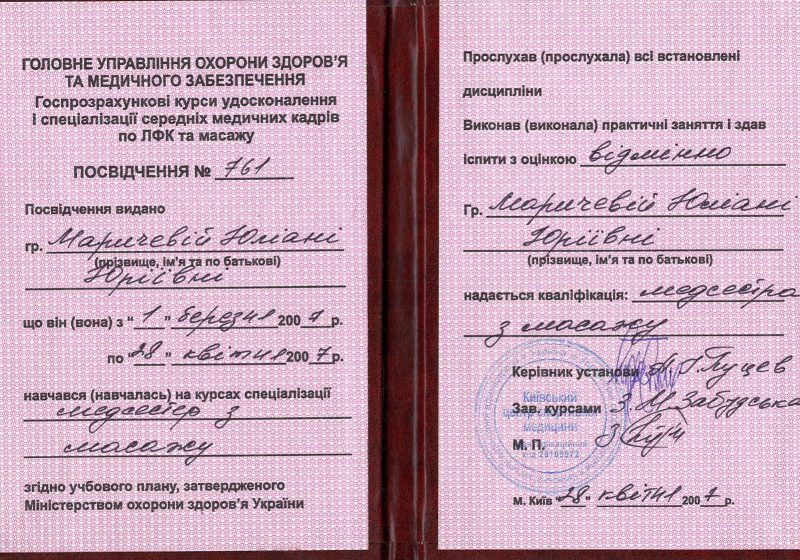 ГОЛОВНЕ УПРАВЛІННЯ ОХОРОНИ ЗДОРОВ'Я
ТА МЕДИЧНОГО ЗАБЕЗПЕЧЕННЯ
Госпрозрахункові курси удосконалення
і спеціалізації середніх медичних кадрів
по ЛФК та масажу
ПОСВІДЧЕННЯ № 761
Посвідчення видано
гр. Маричевій Юліані
(прізвище, ім'я та по батькові)
Юріївні
що він (вона) з “ 1 ” березня 2007 р.
по “ 28 ” квітня 2007 р.
навчався (навчалась) на курсах спеціалізації
медсестер з
масажу
згідно учбового плану, затвердженого
Міністерством охорони здоров'я України
Прослухав (прослухала) всі встановлені
дисципліни
Виконав (виконала) практичні заняття і здав
іспити з оцінкою відмінно
Гр. Маричевій Юліані
Юріївні
(прізвище, ім'я та по батькові)
надається кваліфікація: медсестра
з масажу
Керівник установи
Зав. курсами
М. П.
Київський
медицини
м. Київ “28” квітня 2007 р.